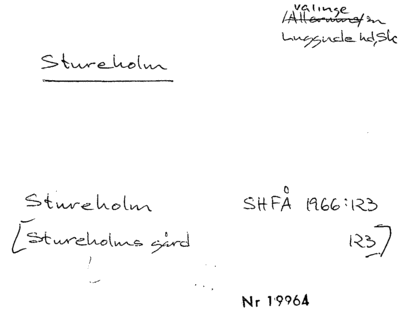 välinge
/Allerums/ sn
Luggude hd, Sk
Stureholm
Stureholm SHFÅ 1966:123
[Stureholms gård 123]
Nr 19964